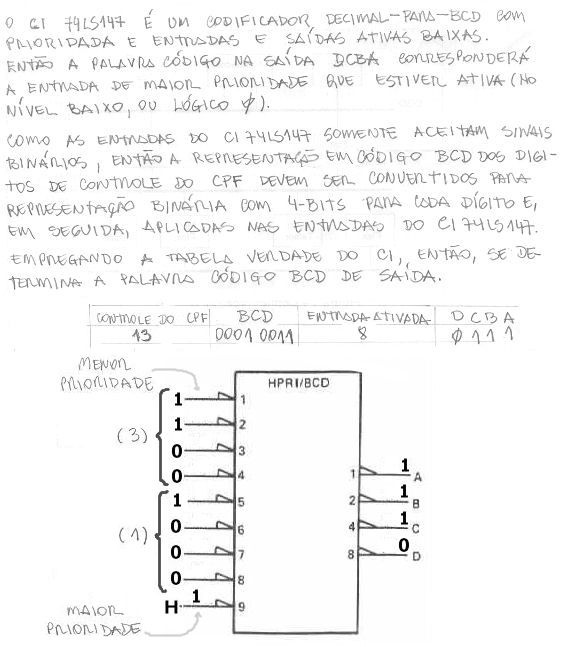 O CI 74LS147 É UM CODIFICADOR DECIMAL-PARA-BCD COM
PRIORIDADA E ENTRADAS E SAÍDAS ATIVAS BAIXAS.
ENTÃO A PALAVRA CÓDIGO NA SAÍDA DCBA CORRESPONDERÁ
A ENTRADA DE MAIOR PRIORIDADE QUE ESTIVER ATIVA (NO
NÍVEL BAIXO, OU LÓGICO 0).
COMO AS ENTRADAS DO CI 74LS147 SOMENTE ACEITAM SINAIS
BINÁRIOS, ENTÃO A REPRESENTAÇÃO EM CÓDIGO BCD DOS DIGI-
TOS DE CONTROLE DO CPF DEVEM SER CONVERTIDOS PARA
REPRESENTAÇÃO BINÁRIA COM 4-BITS PARA CADA DÍGITO E,
EM SEGUIDA, APLICADAS NAS ENTRADAS DO CI 74LS147.
EMPREGANDO A TABELA VERDADE DO CI, ENTÃO, SE DE-
TERMINA A PALAVRA CÓDIGO BCD DE SAÍDA.
CONTROLE DO CPF BCD ENTRADA ATIVADA D C B A
13 0001 0011 8 0 1 1 1
MENOR
PRIORIDADE
HPRI/BCD
1 1
1 2
(3)
0 3
0 4
1 5
0 6
(1)
0 7
0 8
H 1 9
1 1 A
2 1 B
4 1 C
8 0 D
MAIOR
PRIORIDADE